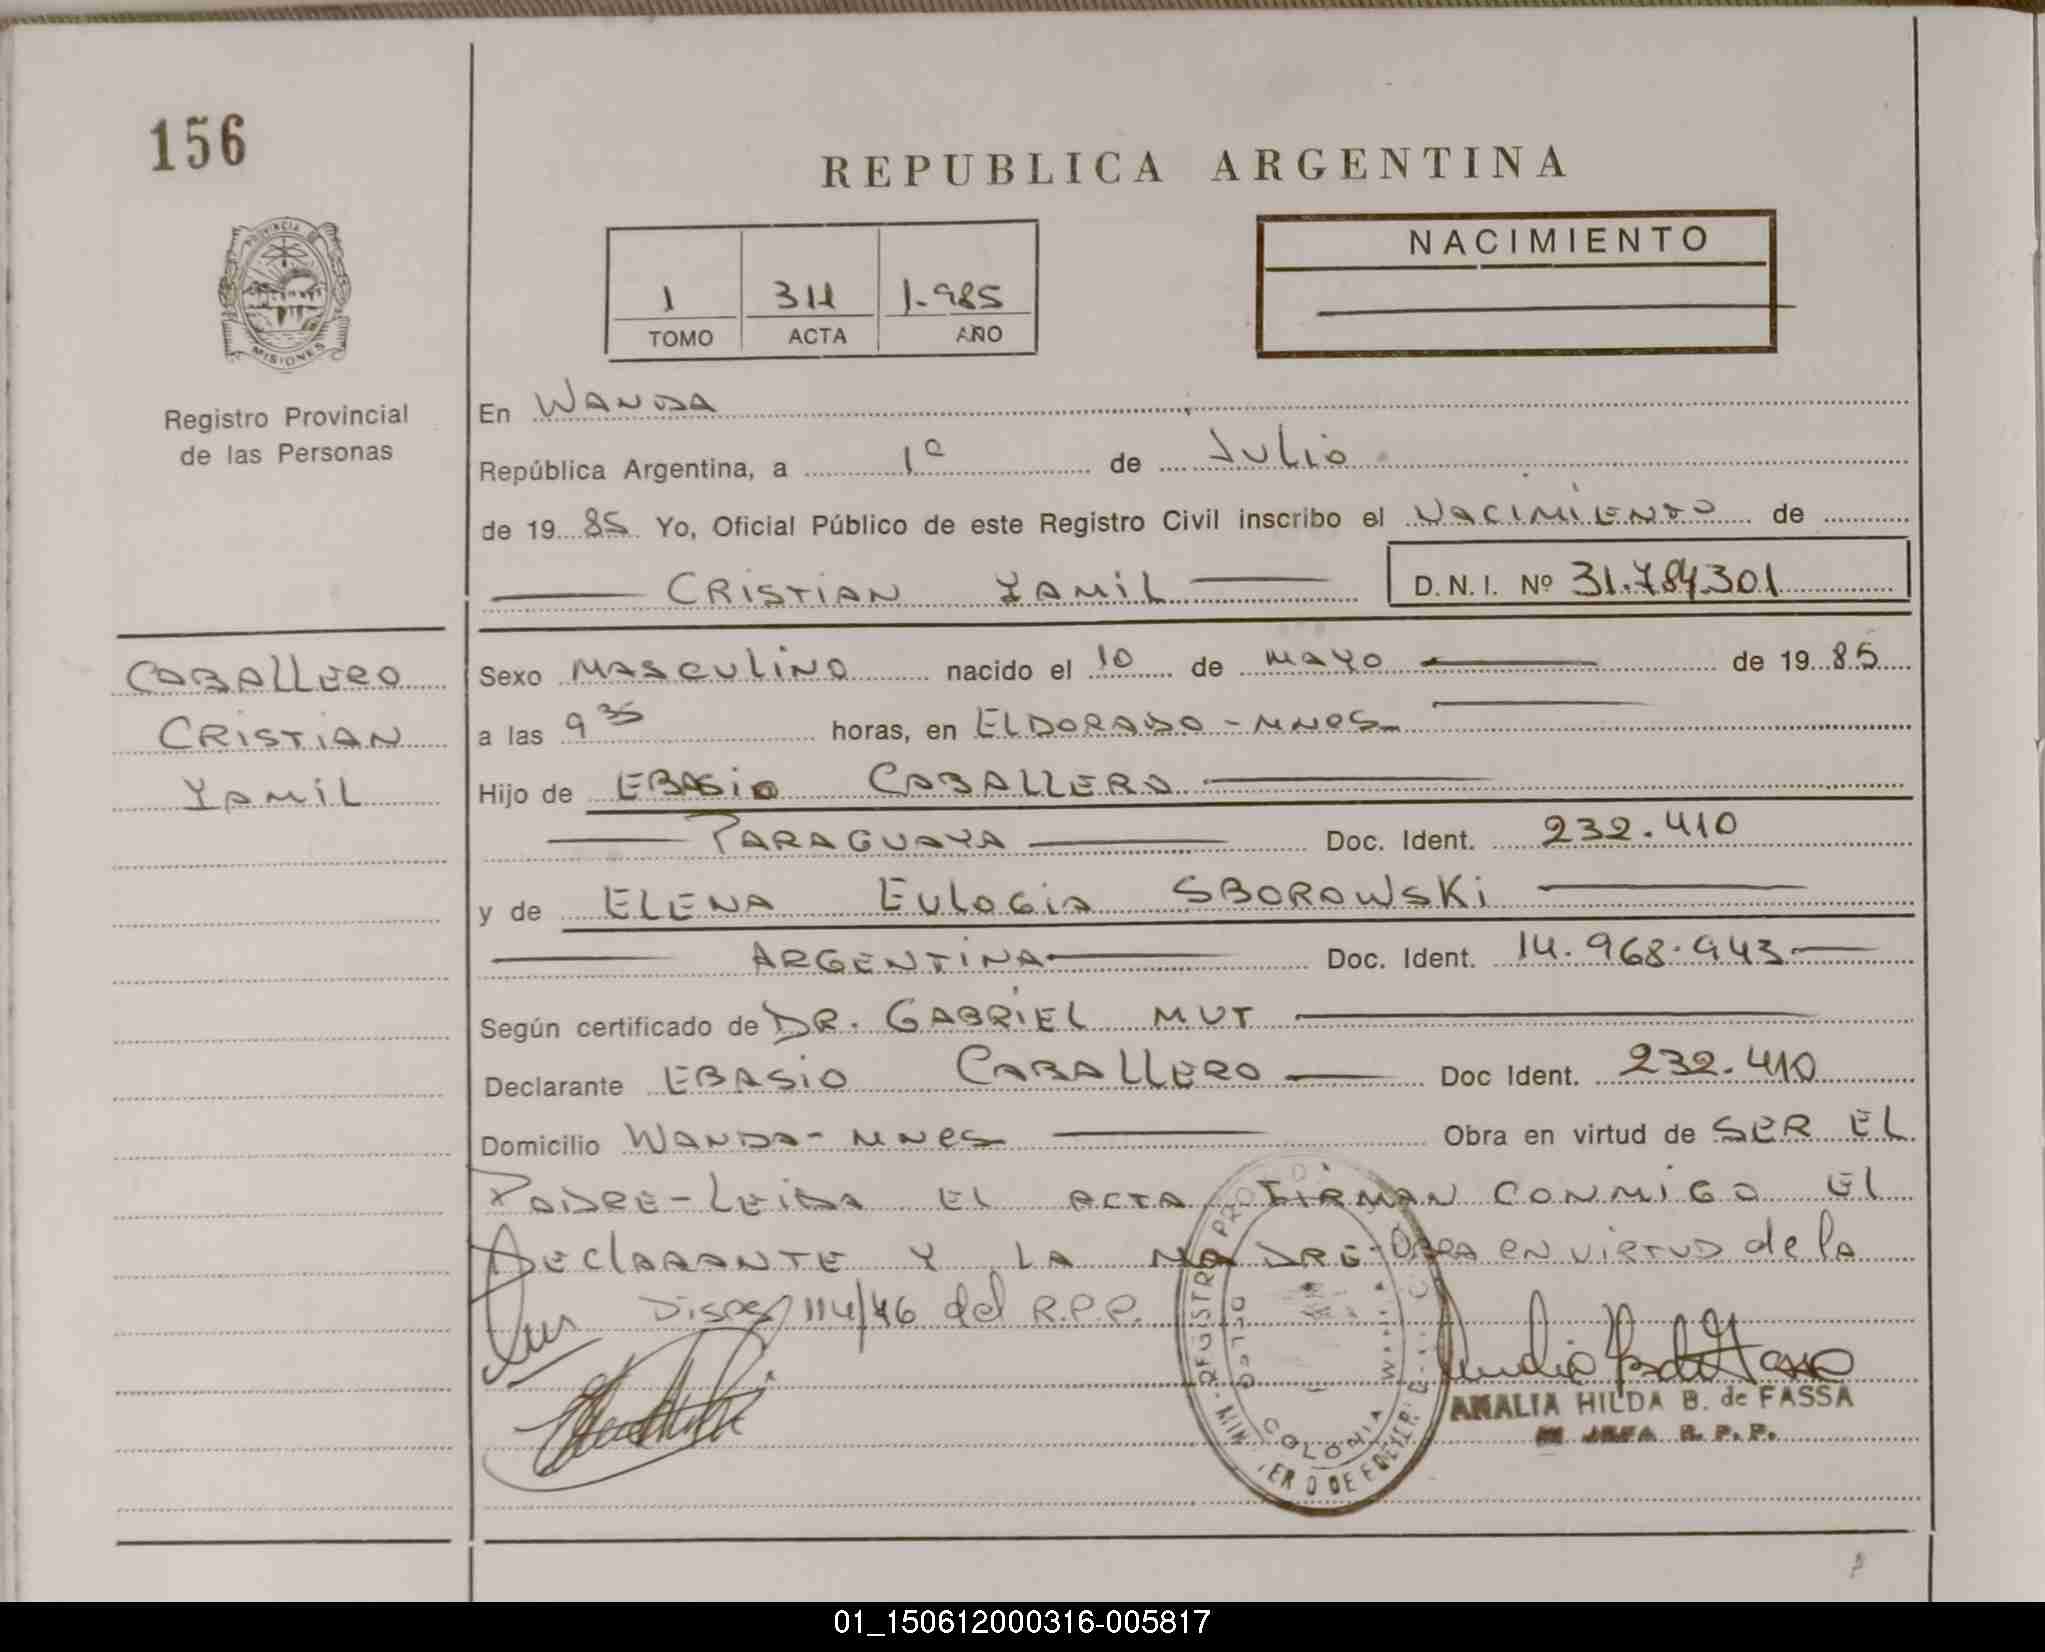 156
REPUBLICA ARGENTINA
NACIMIENTO
PROVINCIA DE
MISIONES
1 311 1.985
TOMO ACTA AÑO
Registro Provincial
de las Personas
En WANDA
República Argentina, a 1º de Julio
de 19 85 Yo, Oficial Público de este Registro Civil inscribo el NACIMIENTO de
CRISTIAN YAMIL D.N.I. Nº 31.784301
CABALLERO
CRISTIAN
YAMIL
Sexo MASCULINO nacido el 10 de MAYO de 19 85
a las 9 35 horas, en ELDORADO - MNES
Hijo de EBASIO CABALLERO
PARAGUAYA Doc. Ident. 232.410
y de ELENA EULOGIA SBOROWSKI
ARGENTINA Doc. Ident. 14.968.943
Según certificado de DR. GABRIEL MUT
Declarante EBASIO CABALLERO Doc Ident. 232.410
Domicilio WANDA - MNES Obra en virtud de SER EL
PADRE - LEIDA EL ACTA FIRMAN CONMIGO EL
DECLARANTE Y LA MADRE - OBRA EN VIRTUD de la
del R.P.P.
COLONIA WANDA
ANALIA HILDA B. de FASSA
JEFA R. P. P.
01_150612000316-005817